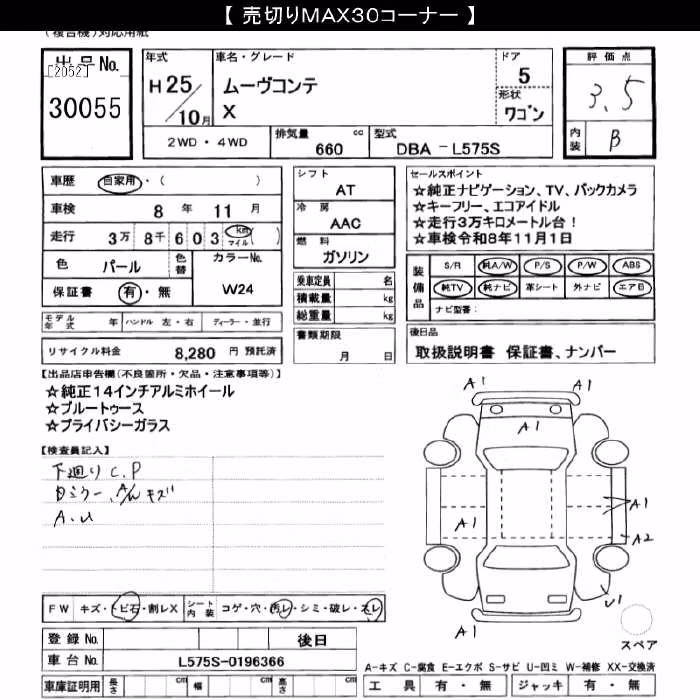 【 売切りMAX30コーナー 】
(複合機)対応用紙
出品No.
[2052]
30055
年式
H25/10月
車名・グレード
ムーヴコンテ
X
ドア
5
形状
ワゴン
評価点
3.5
内装
B
2WD・4WD
排気量 660 cc
型式 DBA-L575S
車歴 自家用・( )
車検 8年 11月
走行 3万 8千 6 0 3 km マイル ( )
色 パール
色替
カラーNo. W24
保証書 有・無
シフト
AT
冷房
AAC
燃料
ガソリン
乗車定員 名
積載量 kg
総重量 kg
セールスポイント
☆純正ナビゲーション、TV、バックカメラ
☆キーフリー、エコアイドル
☆走行3万キロメートル台!
☆車検令和8年11月1日
装備品
S/R 純A/W P/S P/W ABS
純TV 純ナビ 革シート 外ナビ エアB
ナビ型番:
モデル年式 年 ハンドル 左・右 ディーラー・並行
リサイクル料金 8,280 円 預託済
書類期限
月 日
後日品
取扱説明書 保証書、ナンバー
【出品店申告欄(不良箇所・欠品・注意事項等)】
☆純正14インチアルミホイール
☆ブルートゥース
☆プライバシーガラス
【検査員記入】
下廻り C.P
日ミラー、A/W キズ
A.U
A1
A1
A1
A1
A1
A2
U1
A1
スペア
FW キズ・トビ石・割レX
シート内装 コゲ・穴・汚レ・シミ・破レ・スレ
登録No. 後日
車台No. L575S-0196366
車庫証明用 長さ cm 幅 cm 高さ cm
A-キズ C-腐食 E-エクボ S-サビ U-凹ミ W-補修 XX-交換済
工具 有・無 ジャッキ 有・無